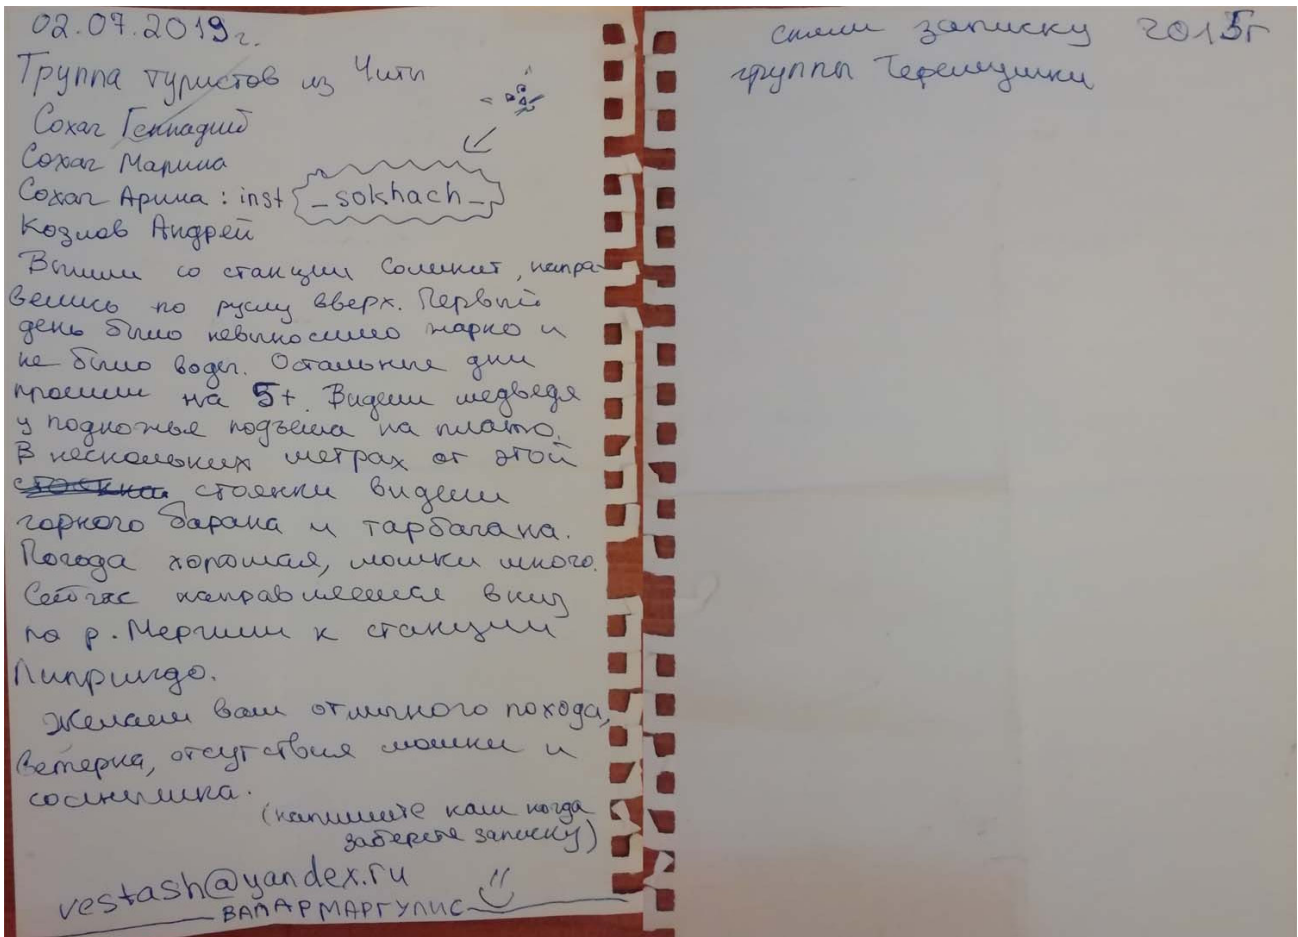 02.07.2019г.
Группа туристов из Читы
Сохач Геннадий
Сохач Марина
Сохач Арина : inst _sokhach_
Козлов Андрей
Вышли со станции Соликит, напра-
вились по руслу вверх. Первый
день было невыносимо жарко и
не было воды. Остальные дни
прошли на 5+. Видели медведя
у подножья подъема на плато.
В нескольких метрах от этой
стоянки видели
горного барана и тарбагана.
Погода хорошая, мошки много.
Сейчас направляемся вниз
по р. Мергили к станции
Лапригдо.
Желаем вам отличного похода,
ветерка, отсутствия мошки и
солнышка.
(напишите нам когда
заберете записку)
vestash@yandex.ru
ВАЛАРМАРГУЛИС
сняли записку 2015г
группы Черемушки